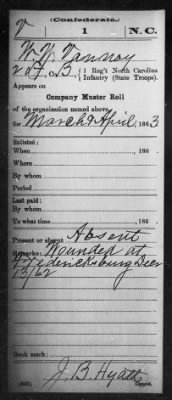 (Confederate.)
V 1 N.C.
W. Y. Vannoy
2d Lt, Co. B, 1 Reg't North Carolina
Infantry (State Troops).
Appears on
Company Muster Roll
of the organization named above,
for March & April, 1863
Enlisted:
When 186 .
Where
By whom
Period
Last paid:
By whom
To what time 186 .
Present or absent Absent
Remarks: Wounded at
Fredericksburg Decr
13/62
Book mark:
J. B. Hyatt
(642) Copyist.